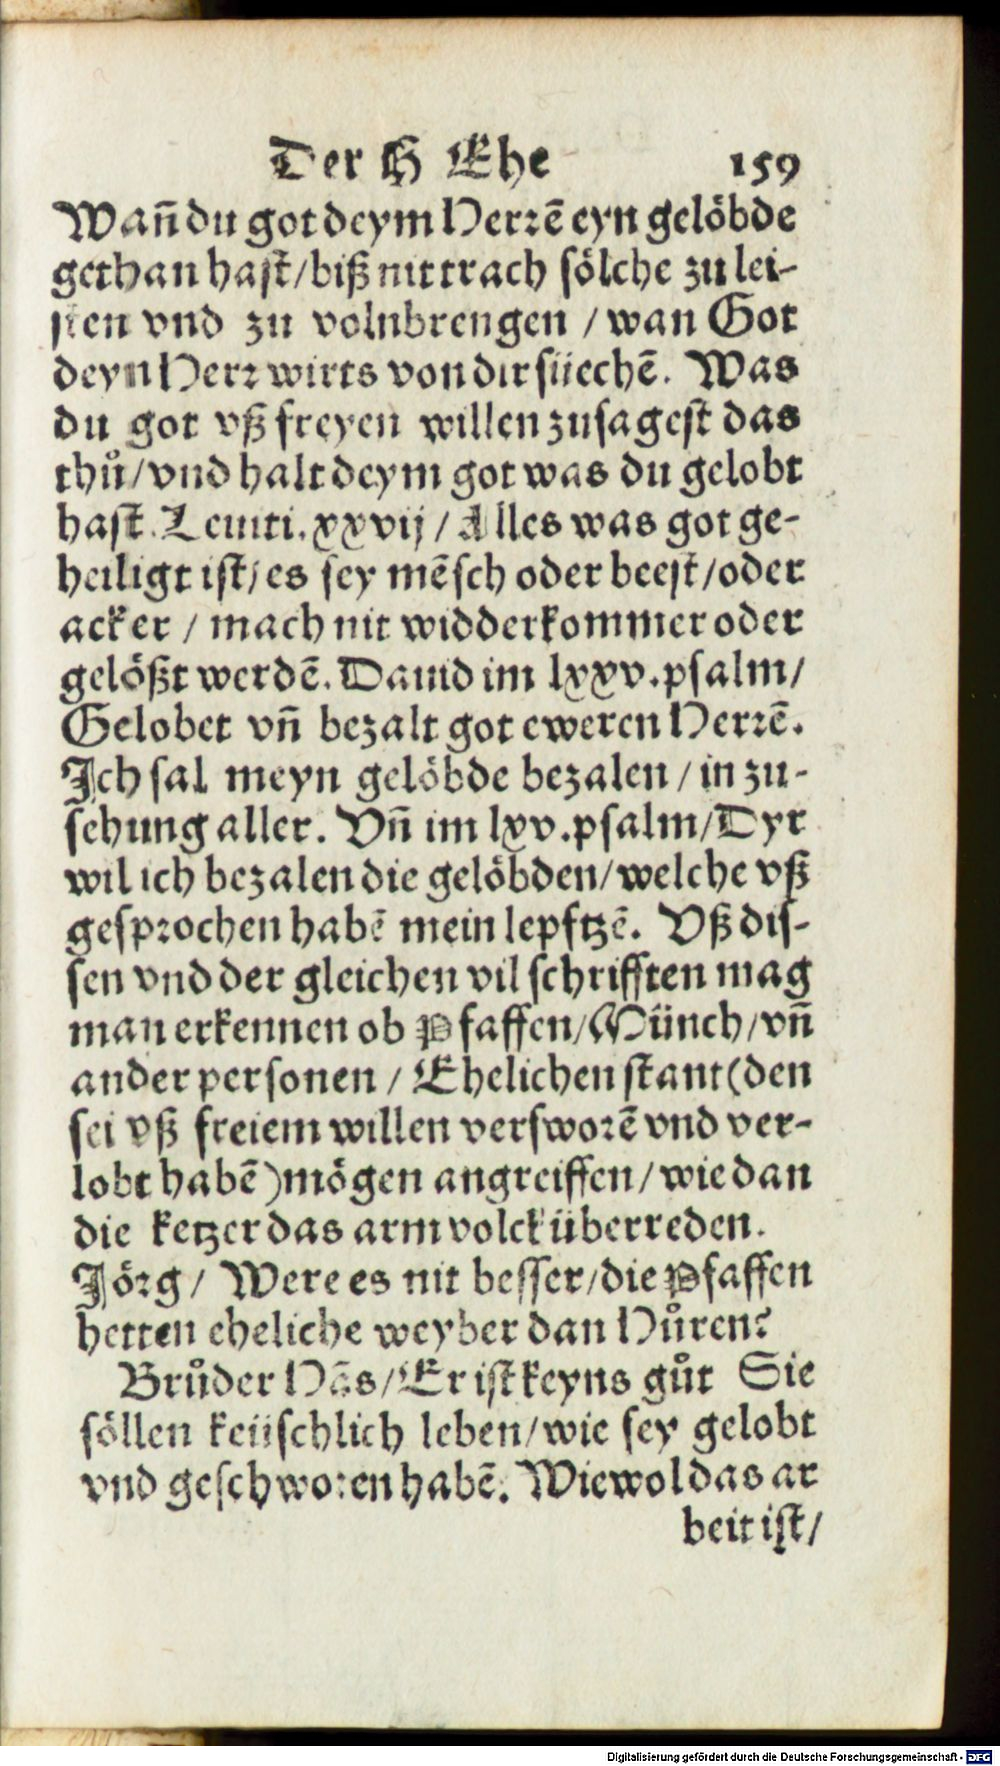 Der H Ehe 159
Wañ du got deym Herrē eyn gelöbde
gethan hast/biß nit trach sölche zu lei-
sten vnd zu volnbrengen / wan Got
deyn Herr wirts von dir süechē. Was
du got vß freyen willen zusagest das
thů/vnd halt deym got was du gelobt
hast. Leuiti. xxvij / Alles was got ge-
heiligt ist/es sey mēsch oder beest/oder
acker / mach nit widderkommer oder
gelößt werdē. Dauid im lxxv.psalm/
Gelobet vñ bezalt got eweren Herrē.
Ich sal meyn gelöbde bezalen / in zu-
sehung aller. Vñ im lxv.psalm/Dyr
wil ich bezalen die gelöbden/welche vß
gesprochen habē mein lepftzē. Vß dis-
sen vnd der gleichen vil schrifften mag
man erkennen ob Pfaffen/Münch/vñ
ander personen / Ehelichen stant(den
sei vß freiem willen versworē vnd ver-
lobt habē)mögen angreiffen/wie dan
die ketzer das arm volck überreden.
Jörg/ Were es nit besser/die Pfaffen
hetten eheliche weyber dan Hůren?
Brůder Hās/Er ist keyns gůt Sie
söllen keüschlich leben/wie sey gelobt
vnd geschworen habē. Wiewol das ar
beit ist/
Digitalisierung gefördert durch die Deutsche Forschungsgemeinschaft - DFG